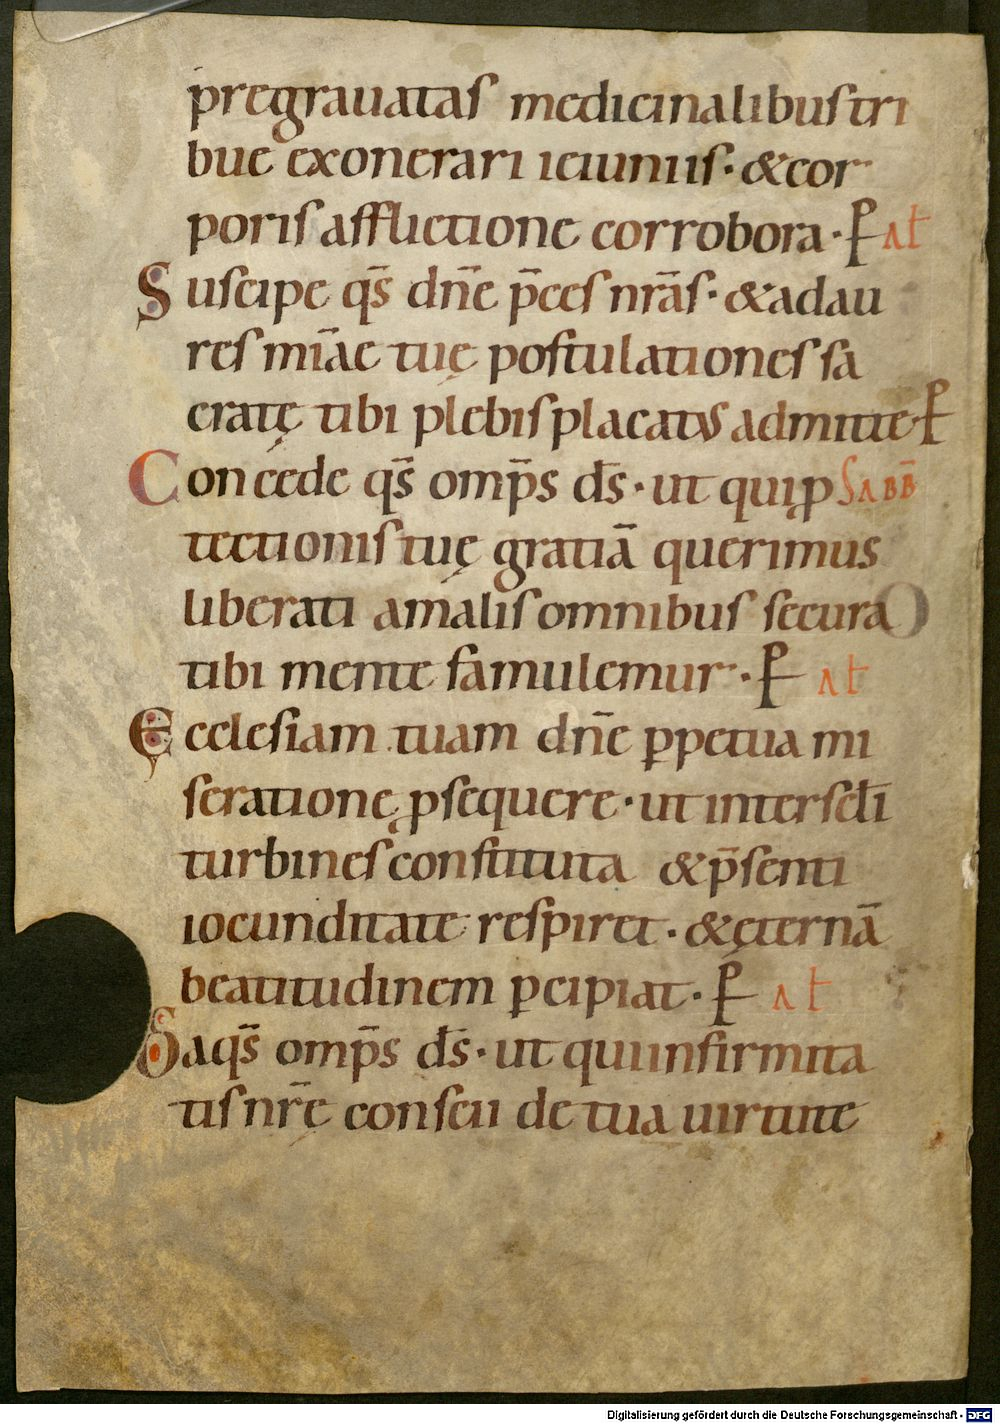 pregrauatas medicinalibus tri
bue exonerari ieiuniis· &cor
poris afflictione corrobora· P at
Suscipe qs̄ dn̄e p̄ces nr̄as· &adau
res mīae tuę postulationes sa
cratę tibi plebis placatus admitte· P
Concede qs̄ omp̄s ds̄· ut qui ꝓ Sabb̄
tectionis tuę gratiā querimus
liberati amalis omnibus secura O
tibi mente famulemur· P at
Ecclesiam tuam dn̄e ꝑpetua mi
seratione ꝓsequere· ut inter scl̄i
turbines constituta &p̄senti
iocunditate respiret· &ęternā
beatitudinem ꝑcipiat· P at
Da qs̄ omp̄s ds̄· ut qui infirmita
tis nr̄ę conscii de tua uirtute
Digitalisierung gefördert durch die Deutsche Forschungsgemeinschaft - DFG